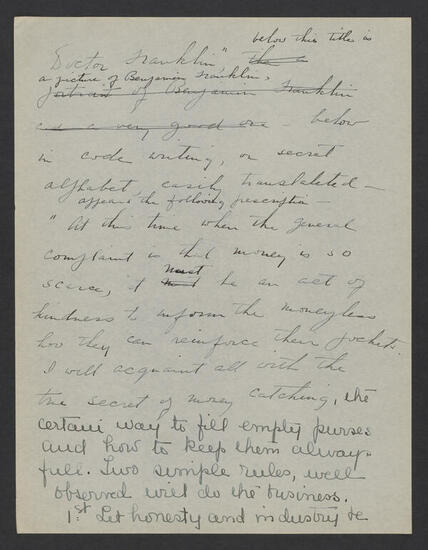 below this title is
Doctor Franklin," the a
a picture of Benjamin Franklin,
portrait of Benjamin Franklin
as a very good one - below
in code writing, or secret
alphabet, easily translateted -
appears the following prescription -
"At this time when the general
complaint is that money is so
scarce, it must must be an act of
kindness to inform the moneyless
how they can reinforce their pockets.
I will acquaint all with the
true secret of money catching, the
certain way to fill empty purses
and how to keep them always
full. Two simple rules, well
observed will do the business.
1.st Let honesty and industry be